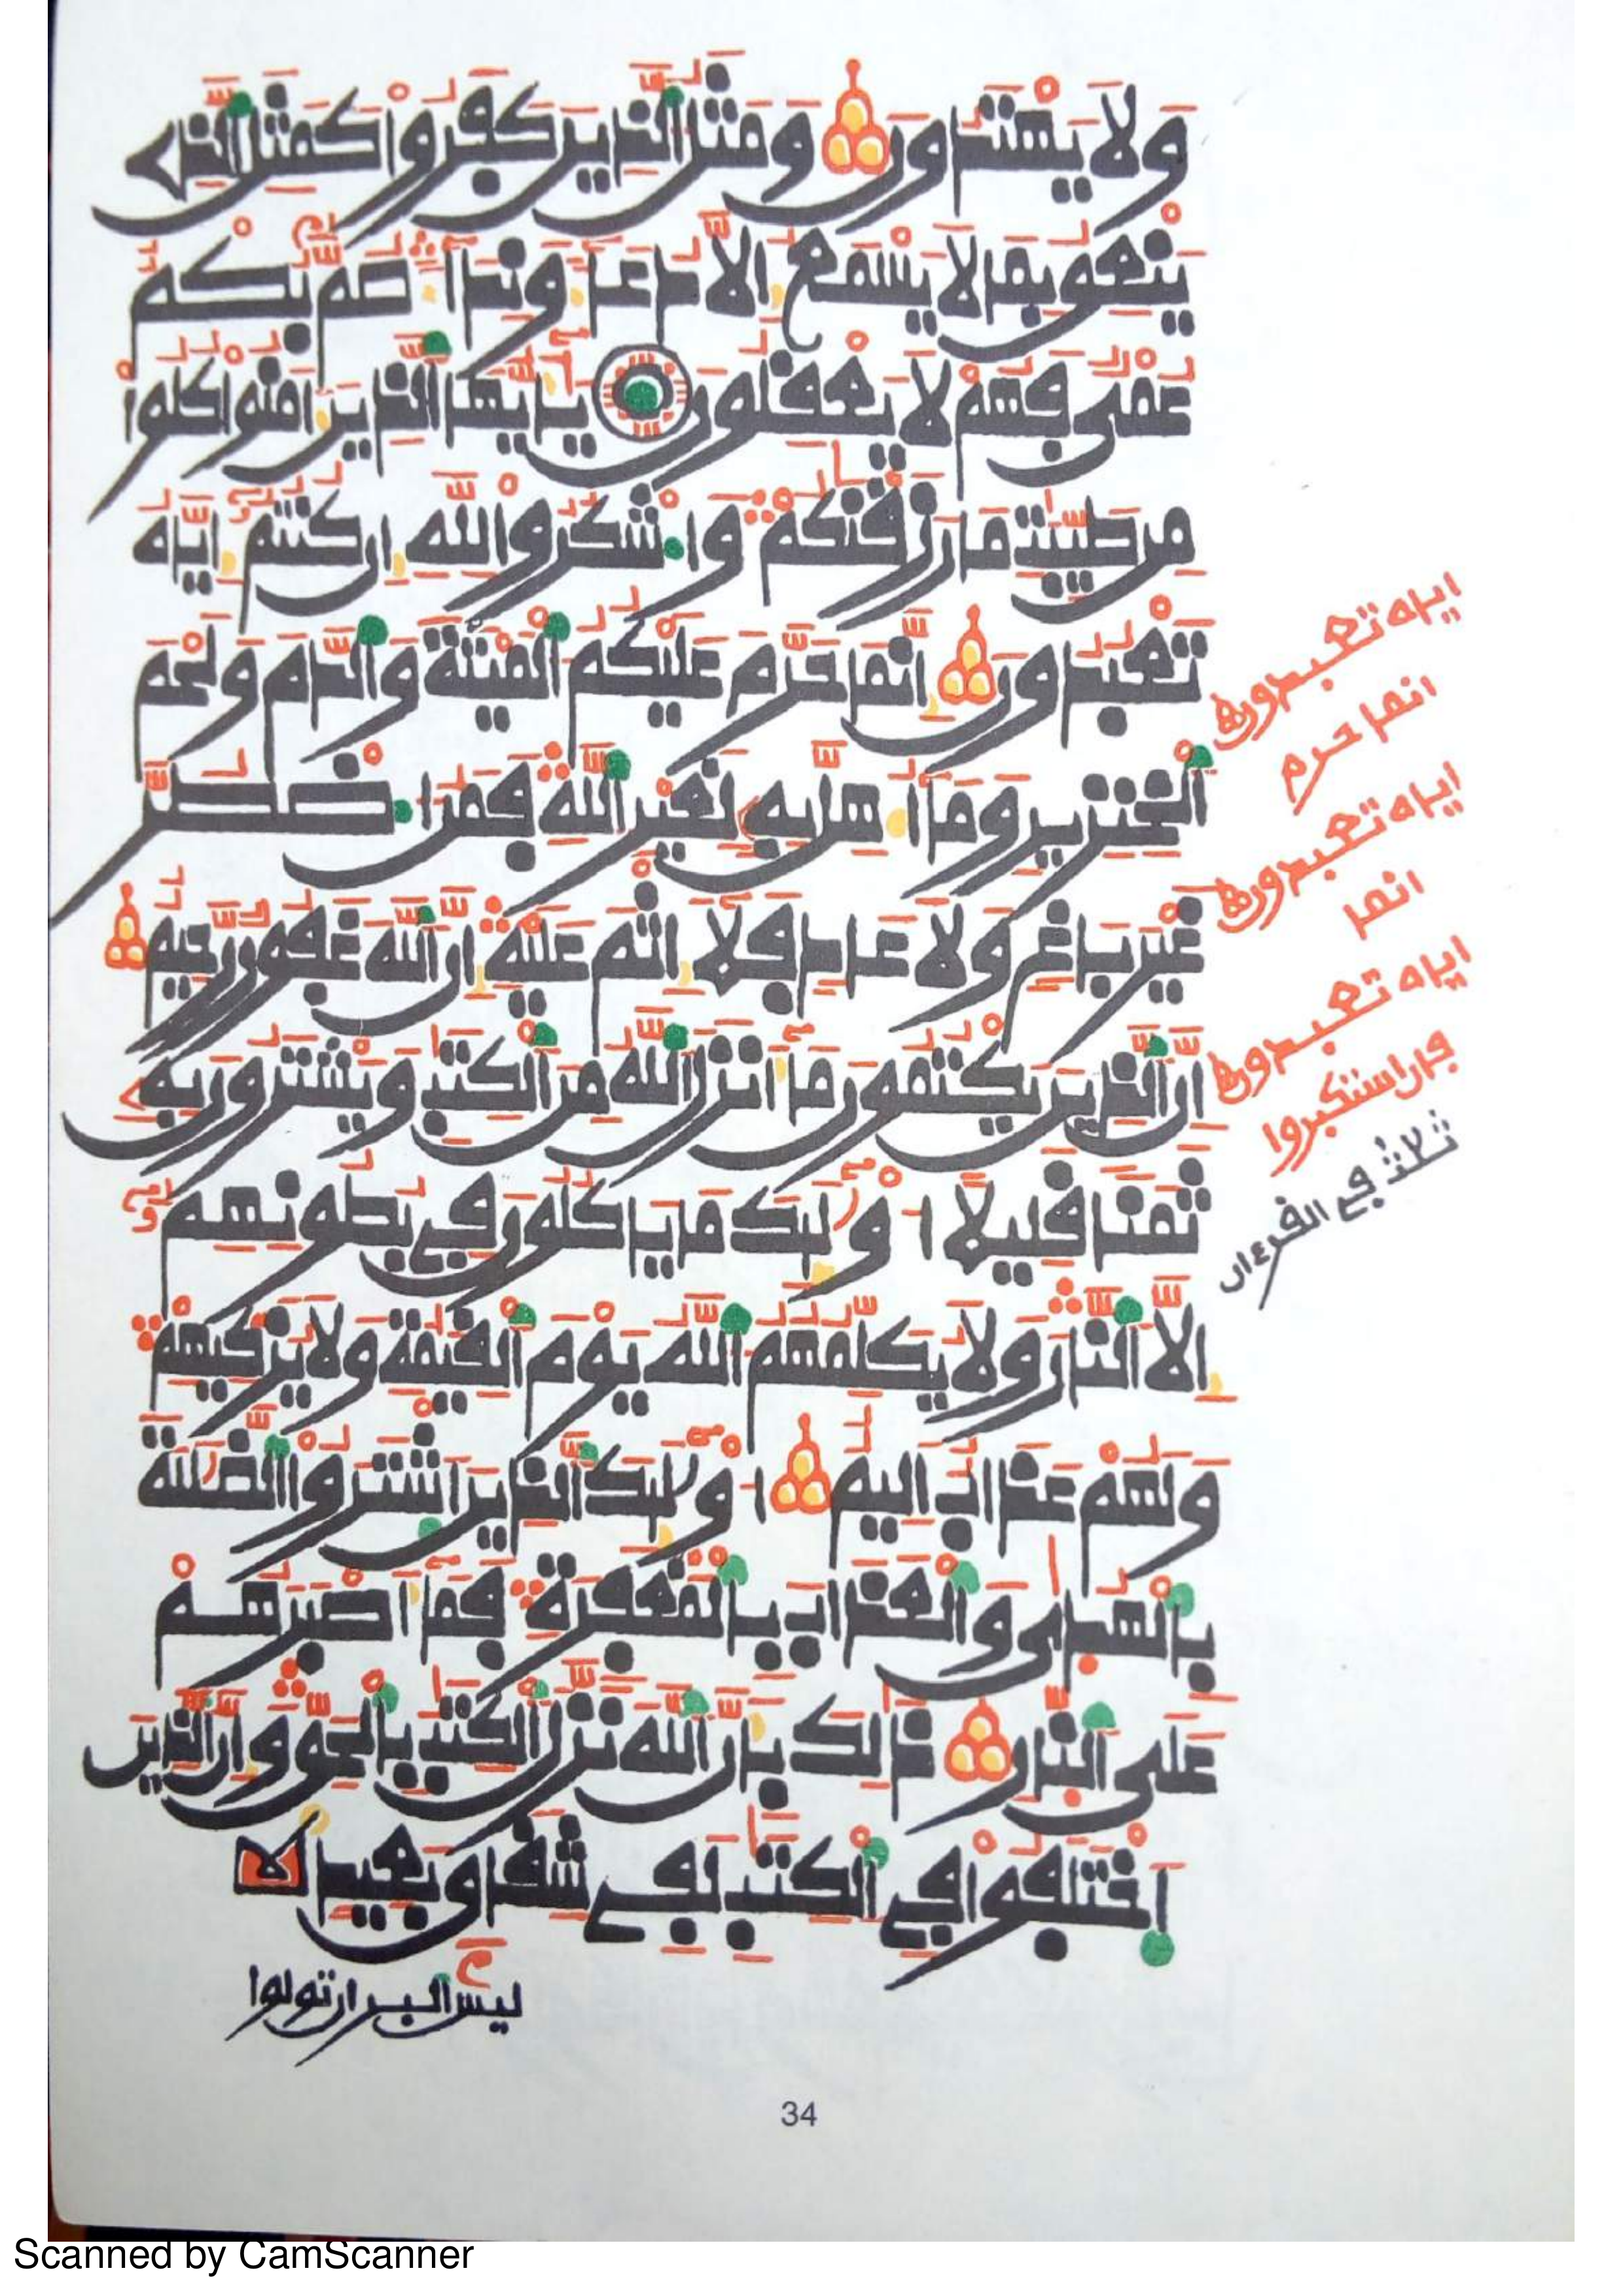 وَلَا يَهْتَدُونَ وَمَثَلُ الذِينَ كَفَرُواْ كَمَثَلِ الذِے
يَنْعِقُ بِمَا لَا يَسْمَعُ إِلَّا دُعَآءً وَنِدَآءً صُمُّۢ بُكْمٌ
عُمْيٌ فَهُمْ لَا يَعْقِلُونَ يَٰٓأَيُّهَا الذِينَ ءَامَنُواْ كُلُواْ
مِن طَيِّبَٰتِ مَا رَزَقْنَٰكُمْ وَاشْكُرُواْ لِلهِ إِن كُنتُمُۥٓ إِيَّاهُ
تَعْبُدُونَ إِنَّمَا حَرَّمَ عَلَيْكُمُ الْمَيْتَةَ وَالدَّمَ وَلَحْمَ
الْخِنزِيرِ وَمَآ أُهِلَّ بِهِۦ لِغَيْرِ اللَّهِ فَمَنُ اضْطُرَّ
غَيْرَ بَاغٍ وَلَا عَادٍ فَلَآ إِثْمَ عَلَيْهِ إِنَّ اللَّهَ غَفُورٌ رَّحِيمٌ
إِنَّ الذِينَ يَكْتُمُونَ مَآ أَنزَلَ اللَّهُ مِنَ الْكِتَٰبِ وَيَشْتَرُونَ بِهِۦ
ثَمَنًا قَلِيلًا أُوْلَٰٓئِكَ مَا يَاكُلُونَ فِي بُطُونِهِمُۥٓ
إِلَّا النَّارَ وَلَا يُكَلِّمُهُمُ اللَّهُ يَوْمَ الْقِيَٰمَةِ وَلَا يُزَكِّيهِمْ
وَلَهُمْ عَذَابٌ أَلِيمٌ أُوْلَٰٓئِكَ الذِينَ اشْتَرَوُاْ الضَّلَٰلَةَ
بِالْهُدَىٰ وَالْعَذَابَ بِالْمَغْفِرَةِ فَمَآ أَصْبَرَهُمْ
عَلَى النَّارِ ذَٰلِكَ بِأَنَّ اللَّهَ نَزَّلَ الْكِتَٰبَ بِالْحَقِّ وَإِنَّ الذِينَ
اخْتَلَفُواْ فِي الْكِتَٰبِ لَفِے شِقَاقٍۭ بَعِيدٍ
ليس البر ان تولوا
اياه تعبدون
انما حرم
اياه تعبدون
انما
اياه تعبدون
فان استكبروا
ثلاث في القرءان
34
Scanned by CamScanner